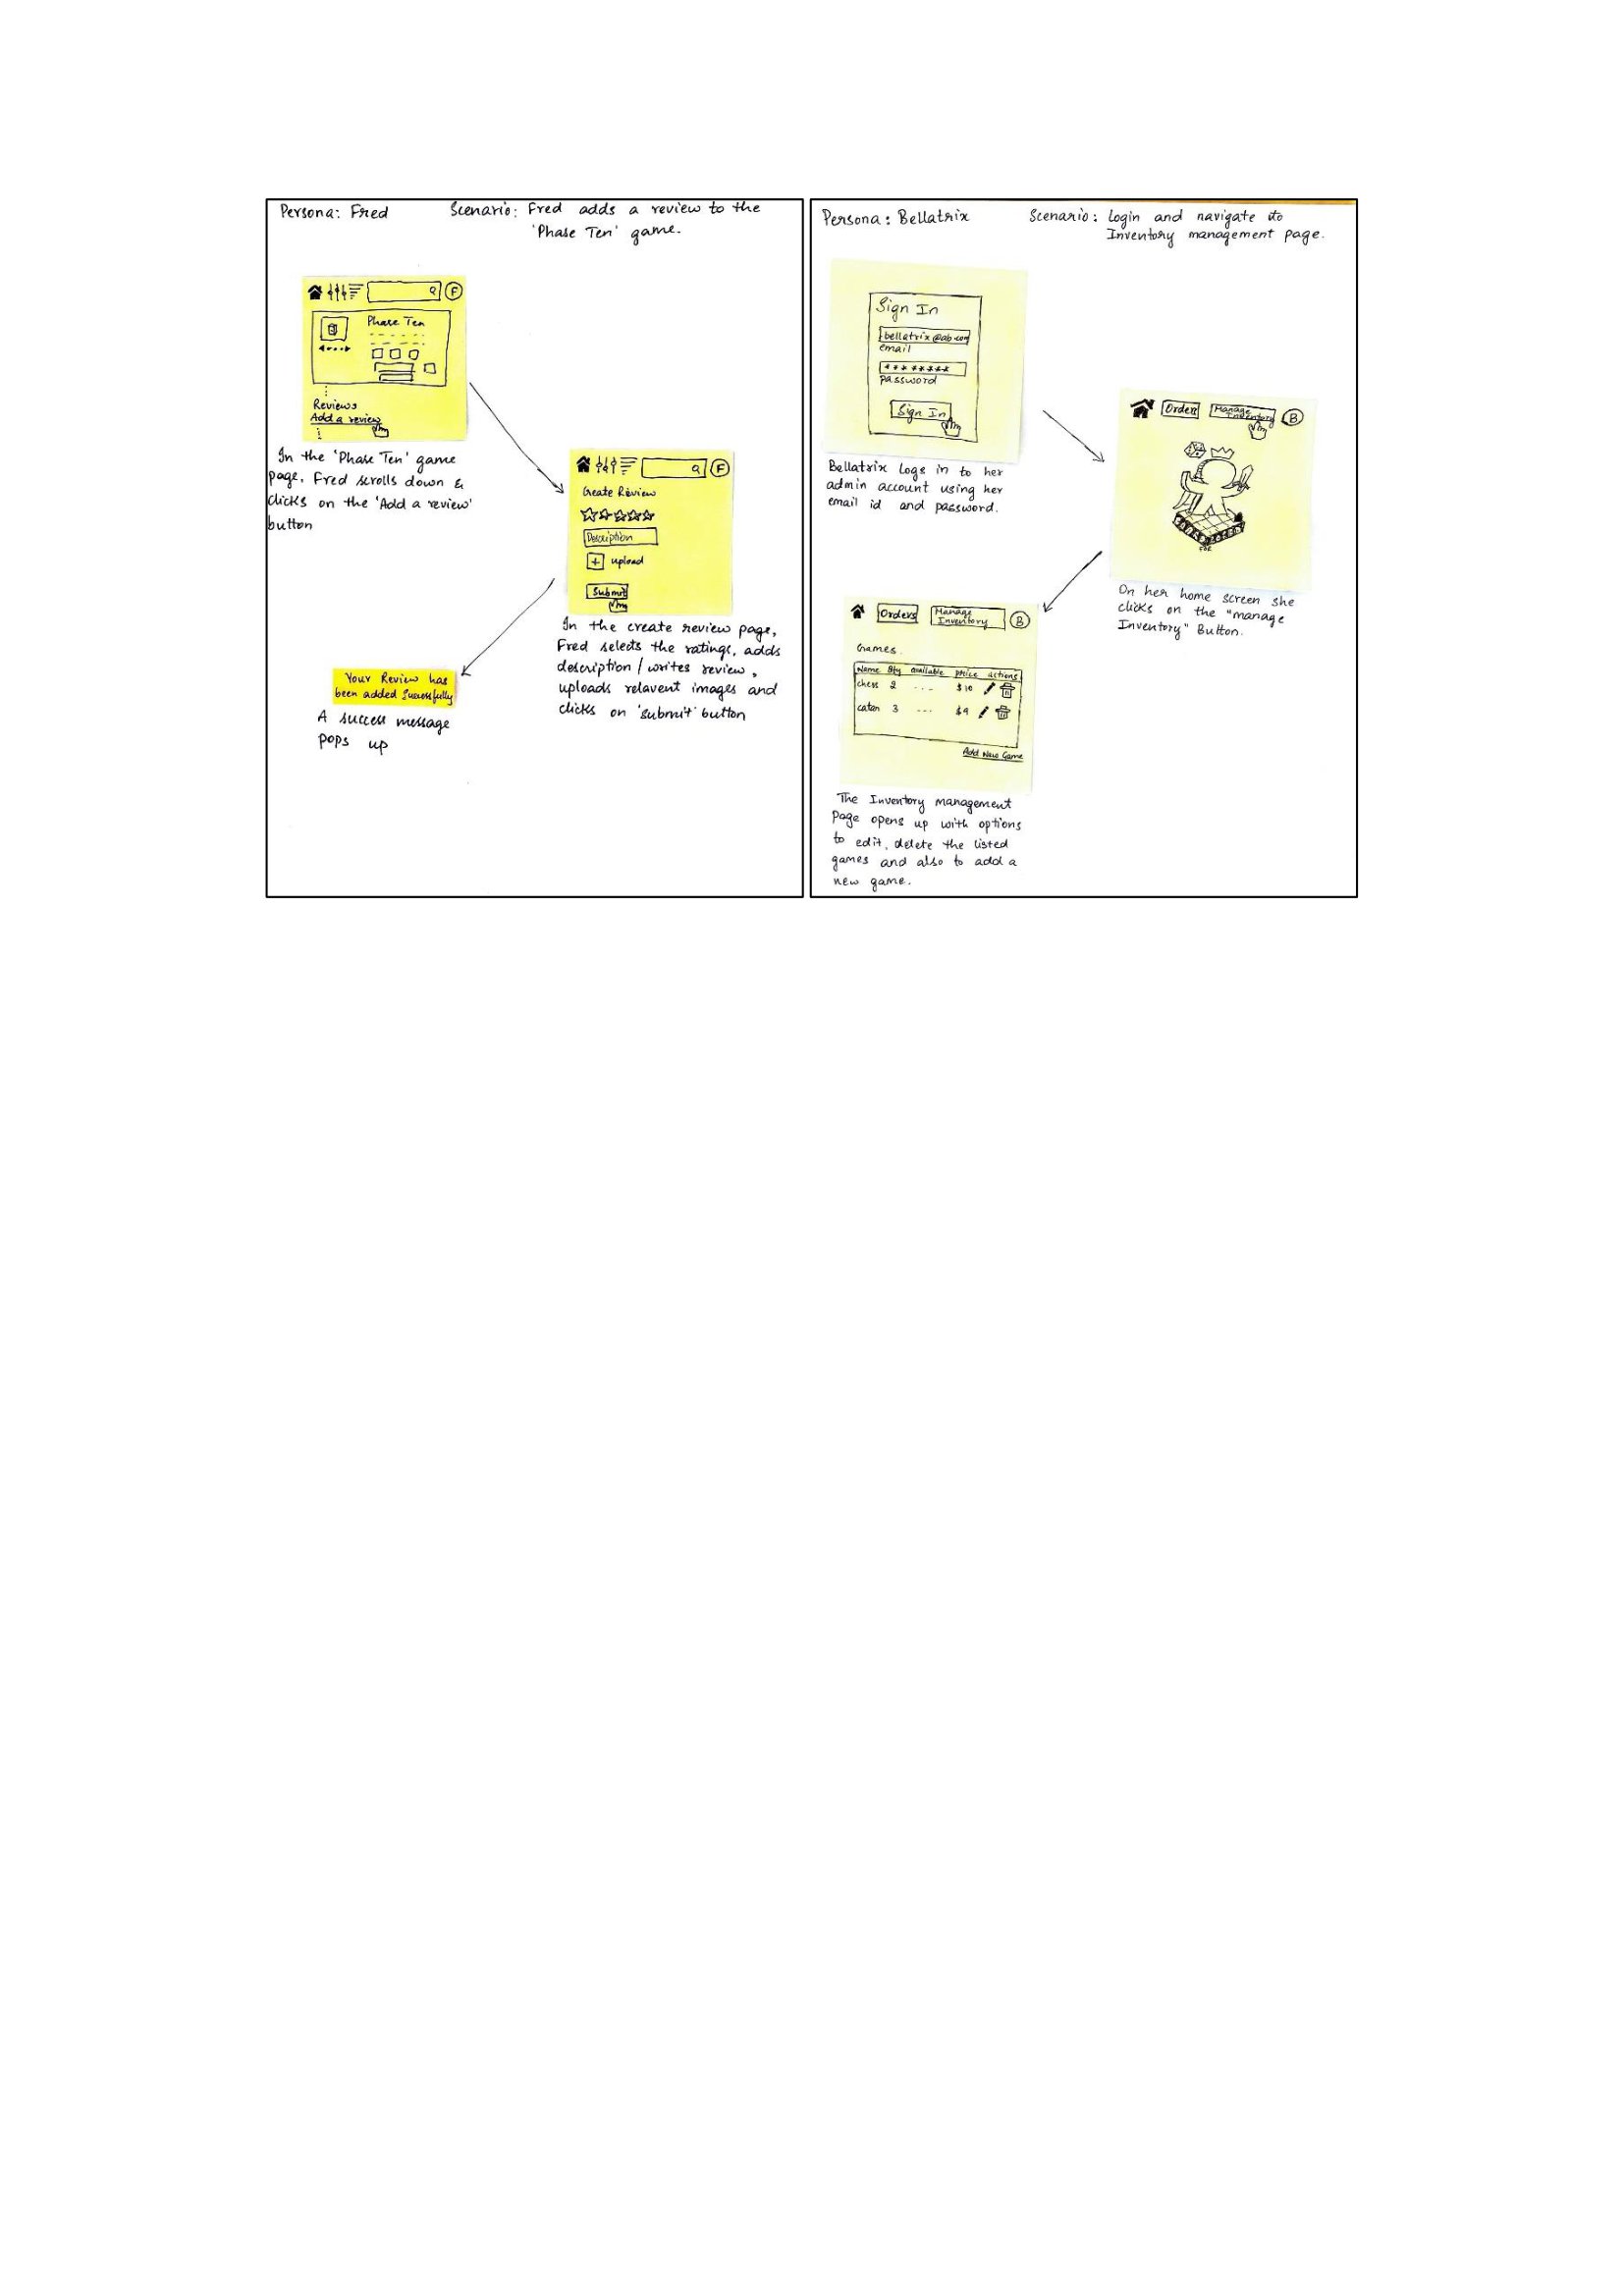 Persona: Fred
Scenario: Fred adds a review to the
'Phase Ten' game.
F
Phase Ten
Reviews
Add a review
In the 'Phase Ten' game
page, Fred scrolls down &
clicks on the 'Add a review'
button
F
Create Review
Description
+ upload
Submit
In the create review page,
Fred selects the ratings, adds
description / writes review,
uploads relavent images and
clicks on 'submit' button
Your Review has
been added Successfully
A success message
pops up
Persona: Bellatrix
Scenario: Login and navigate to
Inventory management page.
Sign In
bellatrix@ab.com
email
********
password
Sign In
Bellatrix Logs in to her
admin account using her
email id and password.
Orders
Manage
Inventory
B
FOR
On her home screen she
clicks on the "manage
Inventory" Button.
Orders
Manage
Inventory
B
Games
Name Qty available price actions
chess 2 ... $10
catan 3 --- $9
Add New Game
The Inventory management
Page opens up with options
to edit, delete the listed
games and also to add a
new game.